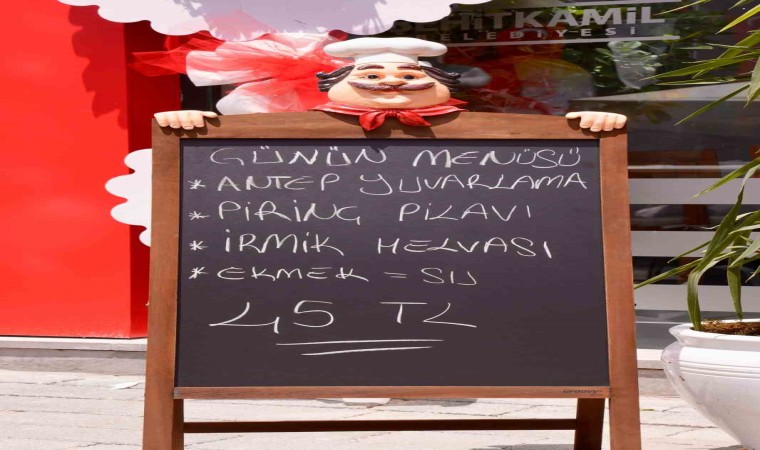 ŞEHİTKAMİL
BELEDİYESİ
GÜNÜN MENÜSÜ
* ANTEP YUVARLAMA
* PİRİNÇ PİLAVI
* İRMİK HELVASI
* EKMEK = SU
45 TL